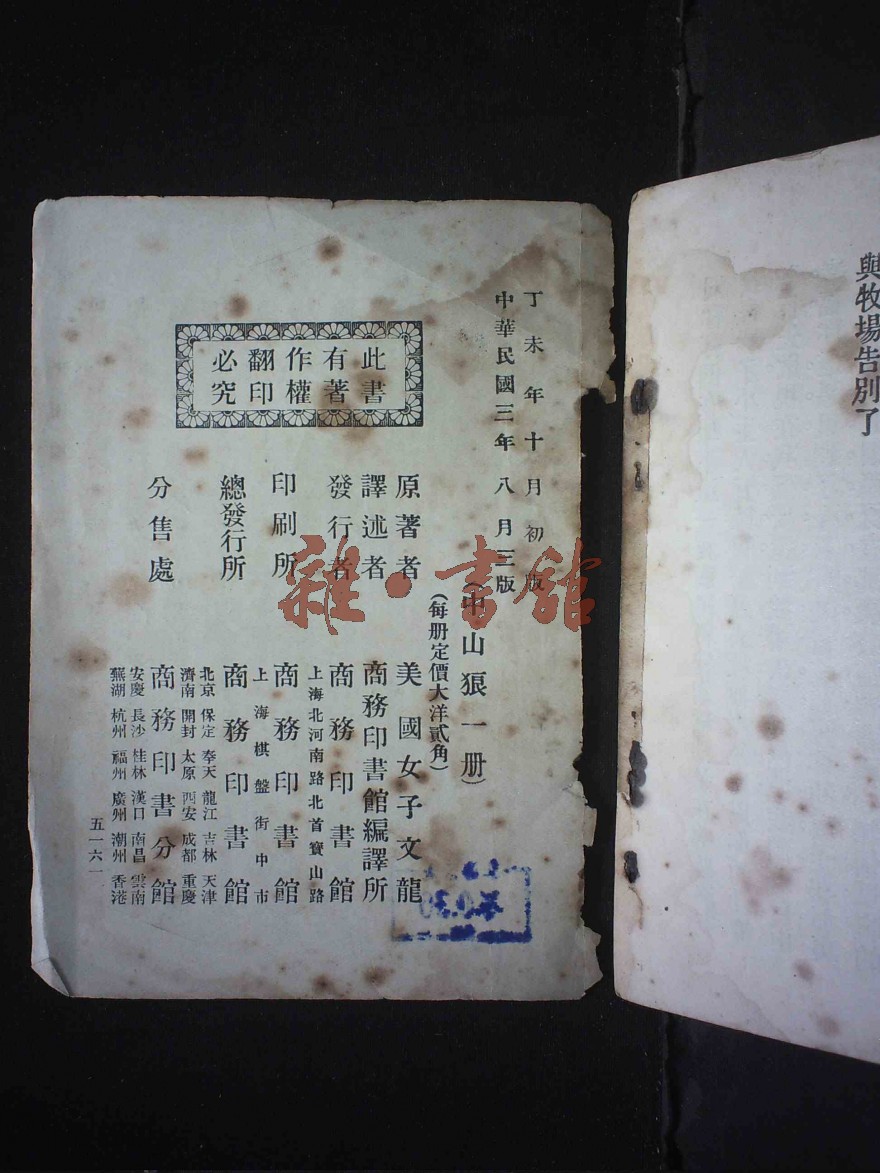 與牧場告別了
丁未年十月初版
中華民國三年八月三版
(中山狼一册)
(每册定價大洋貳角)
原著者 美國女子文龍
譯述者 商務印書館編譯所
發行者 商務印書館
上海北河南路北首寶山路
印刷所 商務印書館
上海棋盤街中市
總發行所 商務印書館
北京 保定 奉天 龍江 吉林 天津
濟南 開封 太原 西安 成都 重慶
分售處 商務印書分館
安慶 長沙 桂林 漢口 南昌 雲南
蕪湖 杭州 福州 廣州 潮州 香港
五一六一
此書
有著
作權
翻印
必究
雜·書館